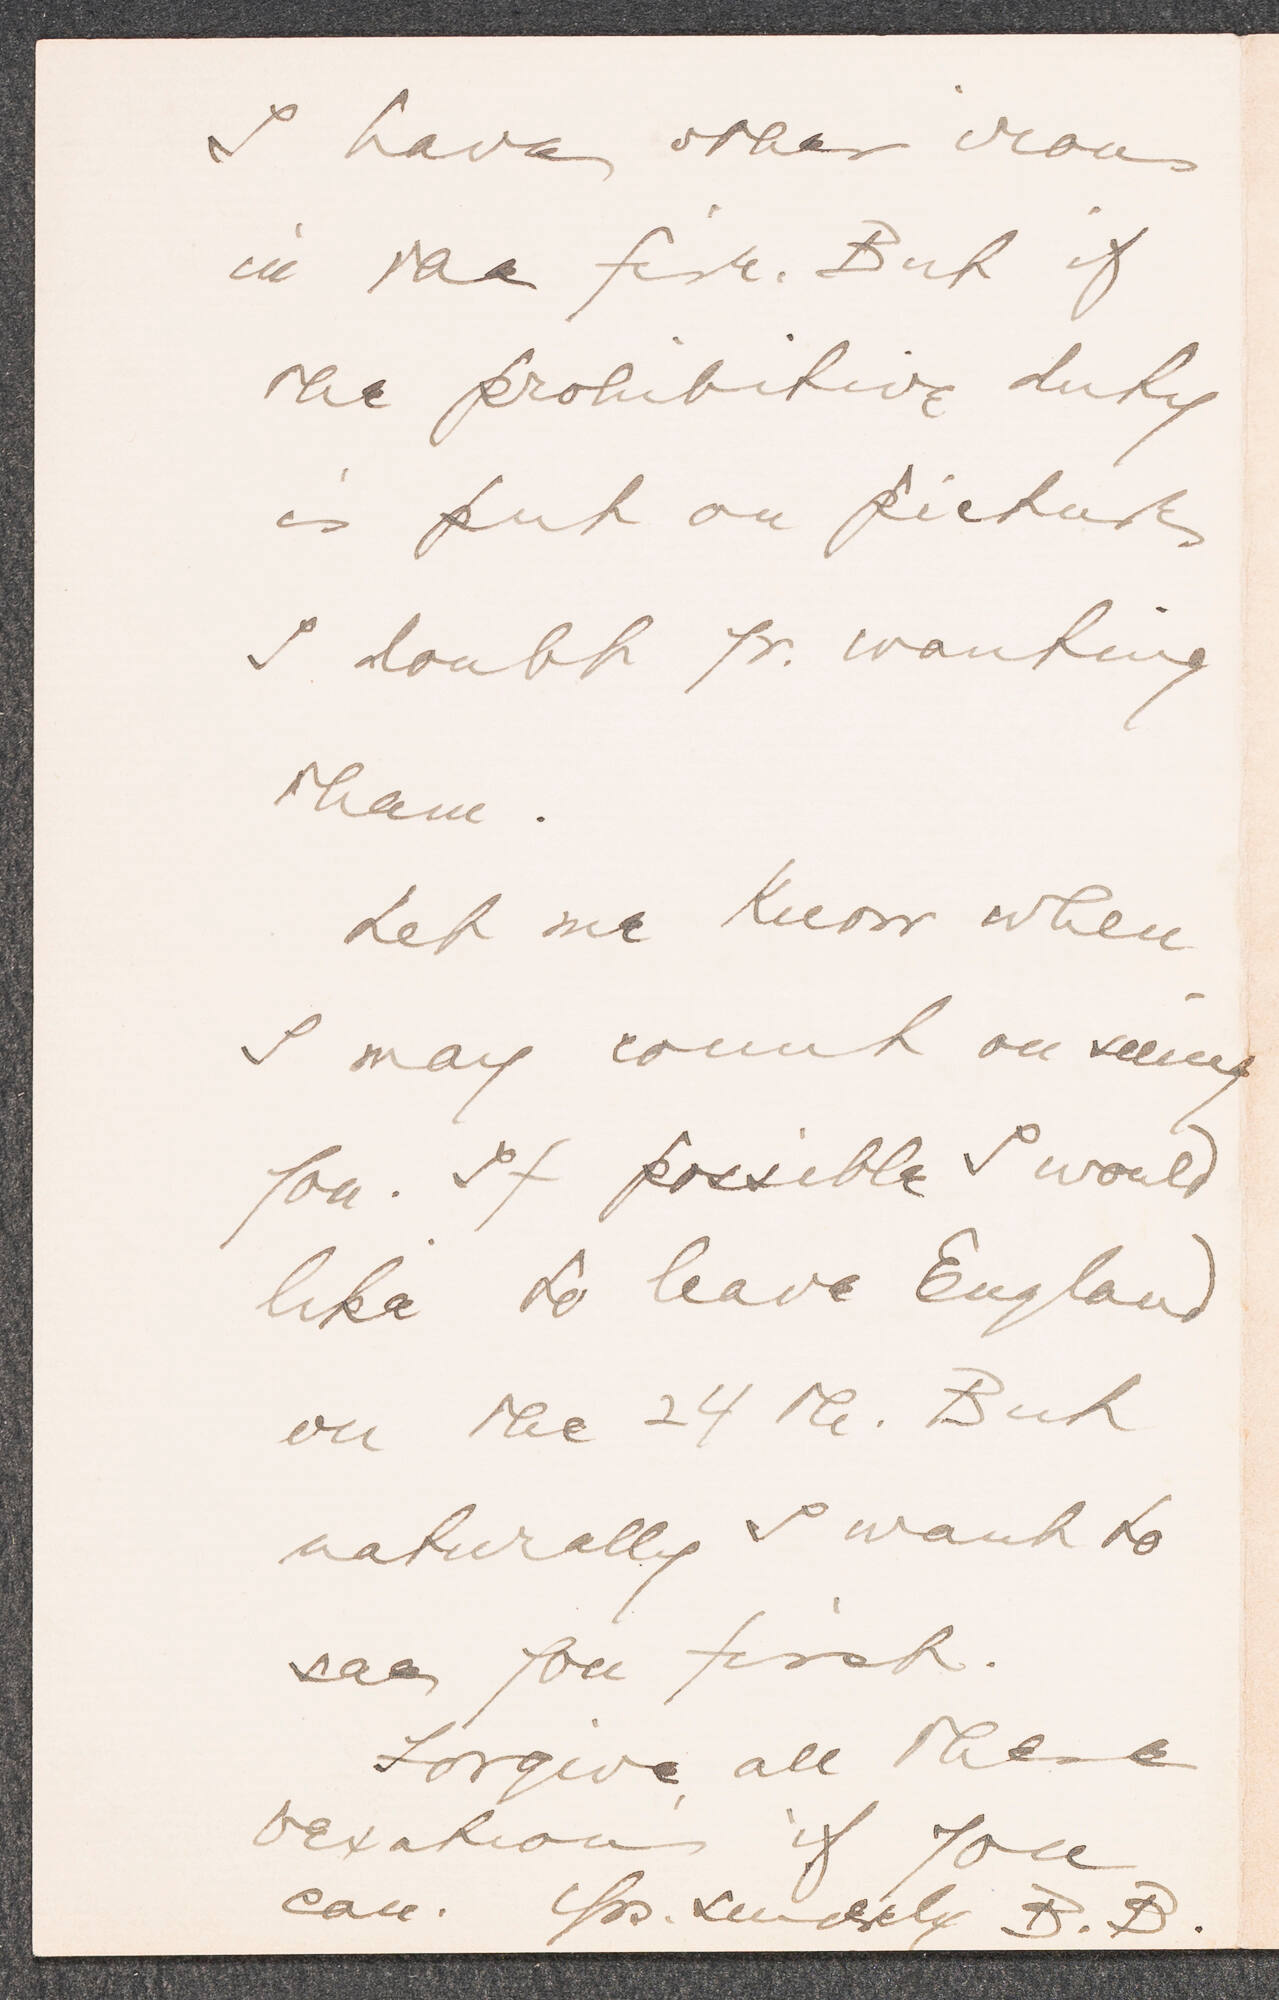 I have other irons
in the fire. But if
the prohibitive duty
is put on pictures
I doubt yr. wanting
them.
Let me know when
I may count on seeing
you. If possible I would
like to leave England
on the 24 th. But
naturally I want to
see you first.
Forgive all these
vexations if you
can. Yrs. sincerely B. B.